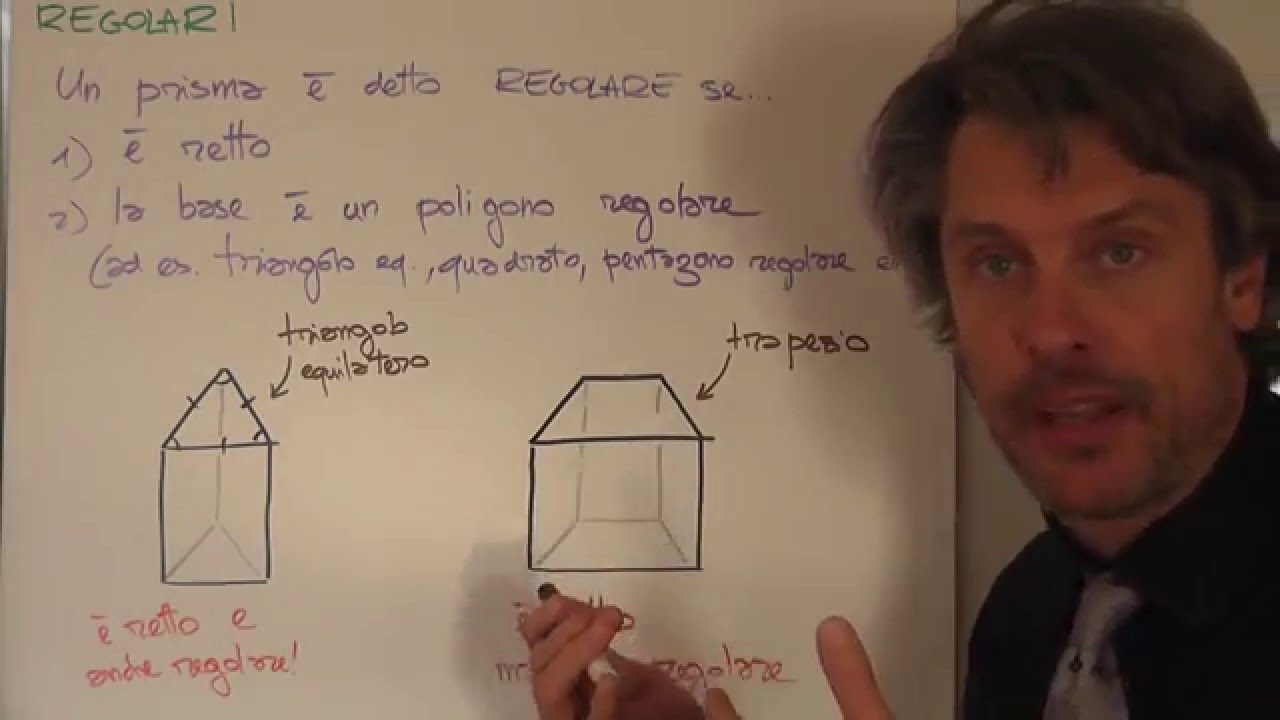 REGOLARI
Un prisma è detto REGOLARE se...
1) è retto
2) la base è un poligono regolare
(ad es. triangolo eq., quadrato, pentagono regolare
triangolo
equilatero
trapezio
è retto e
anche regolare!
regolare